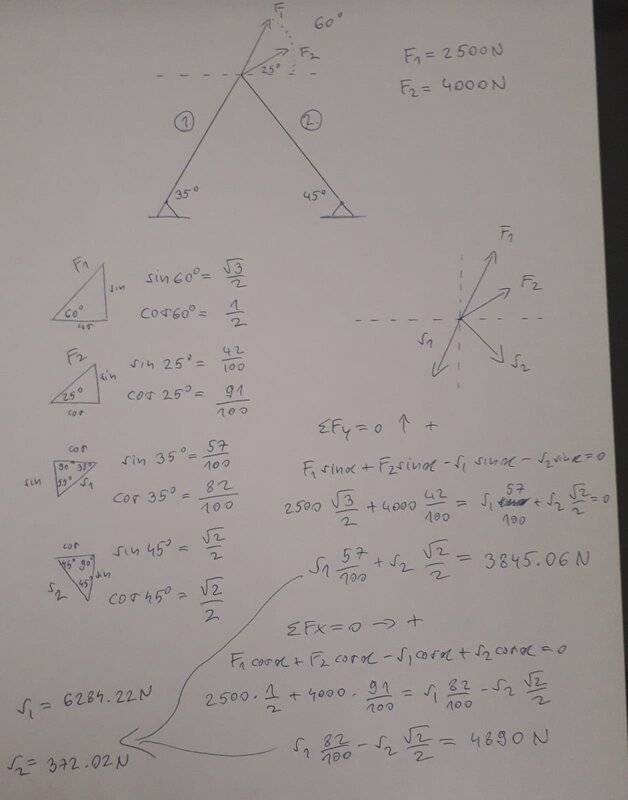 F₁
60°
F₂
25°
F₁ = 2500N
F₂ = 4000N
1
2.
35°
45°
F1
sin
60°
sin 60° = √3/2
cos 60° = 1/2
F2
sin
25°
cos
sin 25° = 42/100
cos 25° = 91/100
F₁
F₂
S₁
S₂
cos
sin
90°
35°
S₁
sin 35° = 57/100
cos 35° = 82/100
cos
45°
90°
sin
45°
S₂
sin 45° = √2/2
cos 45° = √2/2
ΣFy = 0 ↑ +
F₁ sinα + F₂ sinα - S₁ sinα - S₂ sinα = 0
2500 √3/2 + 4000 42/100 = S₁ 57/100 + S₂ √2/2 = 0
S₁ 57/100 + S₂ √2/2 = 3845.06 N
ΣFx = 0 → +
F₁ cosα + F₂ cosα - S₁ cosα + S₂ cosα = 0
2500 · 1/2 + 4000 · 91/100 = S₁ 82/100 - S₂ √2/2
S₁ 82/100 - S₂ √2/2 = 4890 N
S₁ = 6284.22N
S₂ = 372.02N